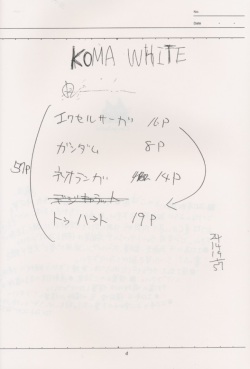 No.
Date
KOMA WHITE
エクセルサーガ 16P
ガンダム 8P
ネオランガ 14P
トゥハート 19P
57P
24
14
19
57